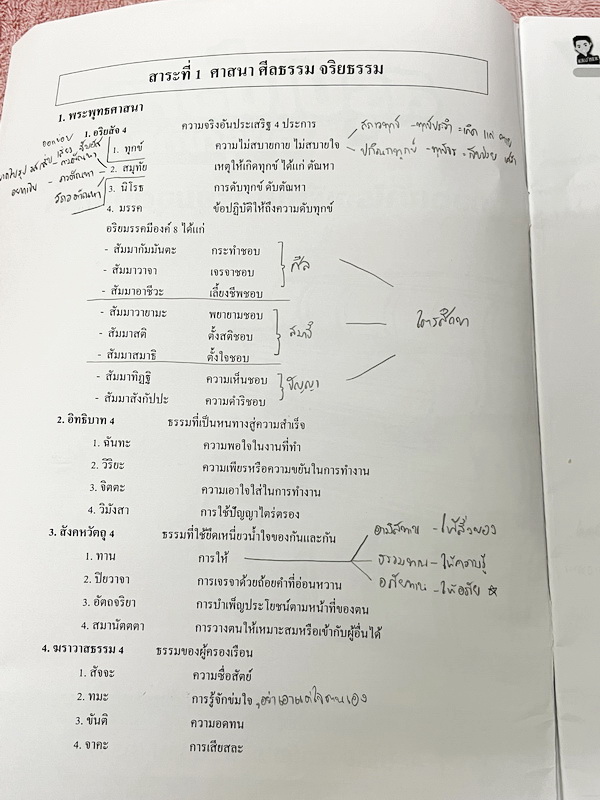 สาระที่ 1 ศาสนา ศีลธรรม จริยธรรม
1. พระพุทธศาสนา
1. อริยสัจ 4 ความจริงอันประเสริฐ 4 ประการ
1. ทุกข์ ความไม่สบายกาย ไม่สบายใจ
2. สมุทัย เหตุให้เกิดทุกข์ ได้แก่ ตัณหา
3. นิโรธ การดับทุกข์ ดับตัณหา
4. มรรค ข้อปฏิบัติให้ถึงความดับทุกข์
สภาวทุกข์ - ทุกข์ประจำ = เกิด แก่ ตาย
กามตัณหา
ภวตัณหา
วิภวตัณหา
อริยมรรคมีองค์ 8 ได้แก่
- สัมมากัมมันตะ กระทำชอบ
- สัมมาวาจา เจรจาชอบ ศีล
- สัมมาอาชีวะ เลี้ยงชีพชอบ
- สัมมาวายามะ พยายามชอบ
- สัมมาสติ ตั้งสติชอบ สมาธิ ไตรสิกขา
- สัมมาสมาธิ ตั้งใจชอบ
- สัมมาทิฏฐิ ความเห็นชอบ ปัญญา
- สัมมาสังกัปปะ ความดำริชอบ
2. อิทธิบาท 4 ธรรมที่เป็นหนทางสู่ความสำเร็จ
1. ฉันทะ ความพอใจในงานที่ทำ
2. วิริยะ ความเพียรหรือความขยันในการทำงาน
3. จิตตะ ความเอาใจใส่ในการทำงาน
4. วิมังสา การใช้ปัญญาไตร่ตรอง
3. สังคหวัตถุ 4 ธรรมที่ใช้ยึดเหนี่ยวน้ำใจของกันและกัน
อามิสทาน - ให้สิ่งของ
1. ทาน การให้ ธรรมทาน - ให้ความรู้
2. ปิยวาจา การเจรจาด้วยถ้อยคำที่อ่อนหวาน อภัยทาน - ให้อภัย
3. อัตถจริยา การบำเพ็ญประโยชน์ตามหน้าที่ของตน
4. สมานัตตตา การวางตนให้เหมาะสมหรือเข้ากับผู้อื่นได้
4. ฆราวาสธรรม 4 ธรรมของผู้ครองเรือน
1. สัจจะ ความซื่อสัตย์
2. ทมะ การรู้จักข่มใจ อย่าเอาแต่ใจตนเอง
3. ขันติ ความอดทน
4. จาคะ การเสียสละ